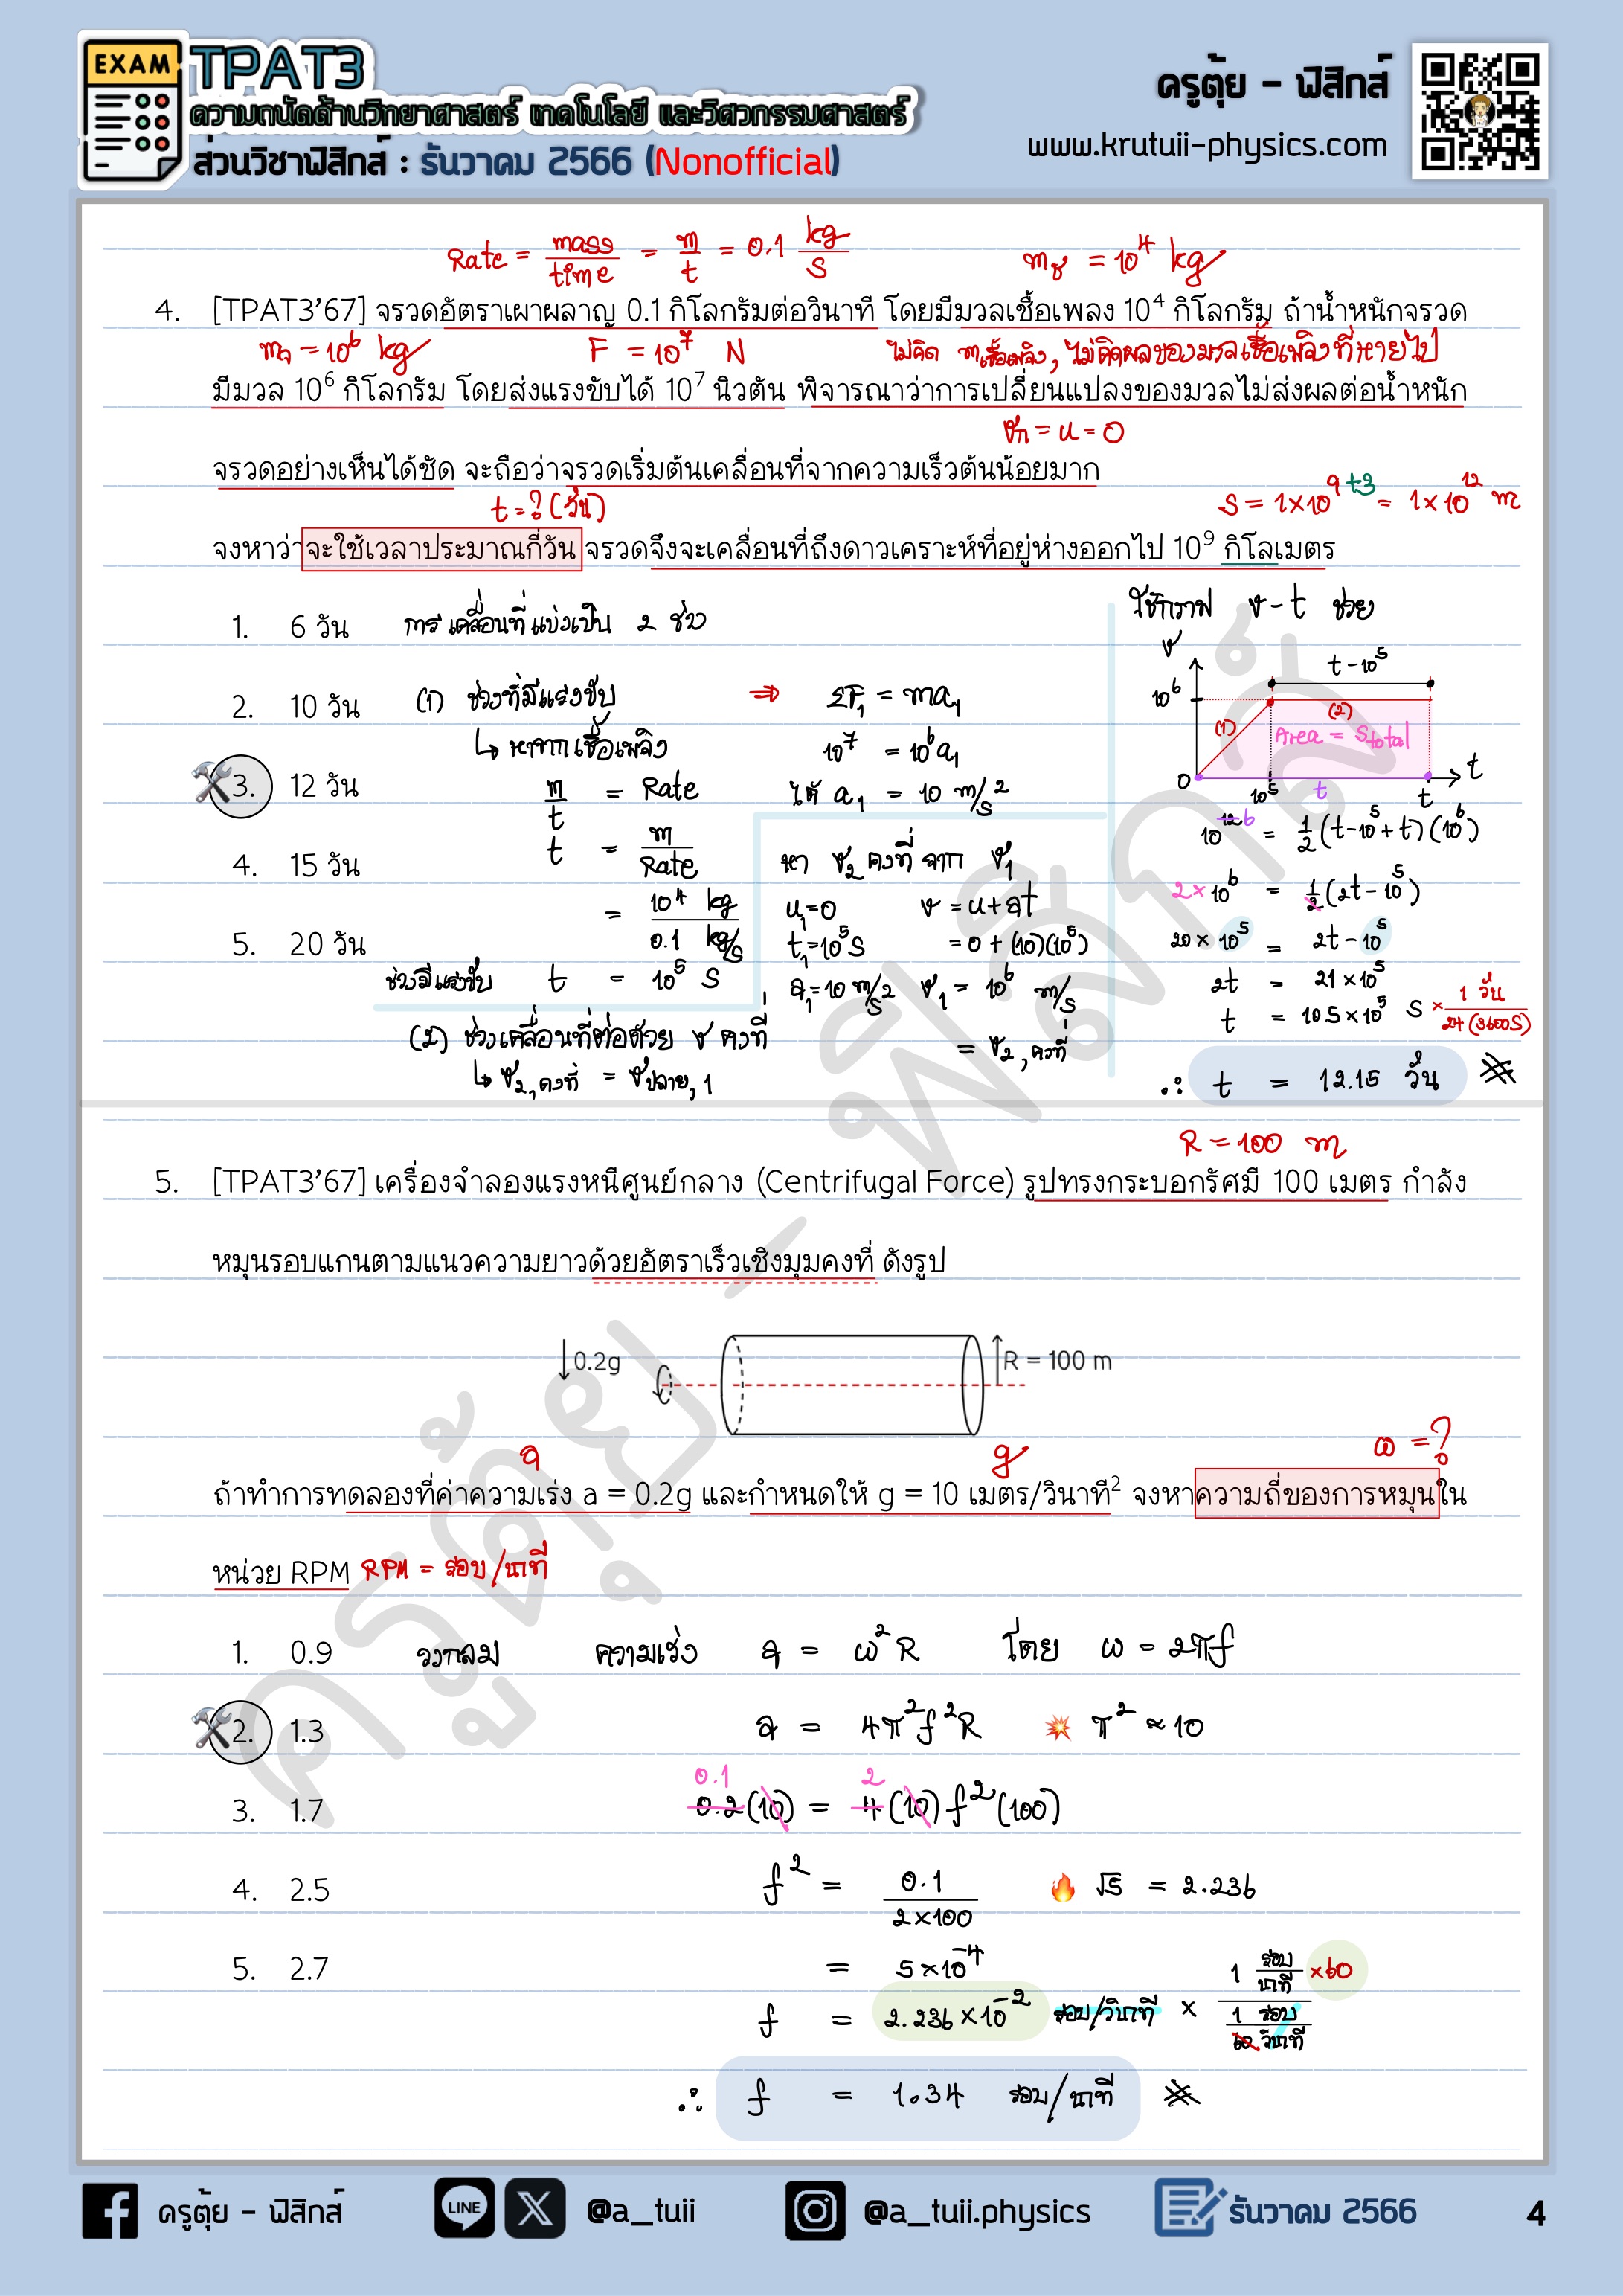 EXAM
TPAT3
ความถนัดด้านวิทยาศาสตร์ เทคโนโลยี และวิศวกรรมศาสตร์
ส่วนวิชาฟิสิกส์ : ธันวาคม 2566 (Nonofficial)
ครูตุ้ย - ฟิสิกส์
www.krutuii-physics.com
Rate = mass/time = m/t = 0.1 kg/s
= 10⁴ kg
4. [TPAT3'67] จรวดอัตราเผาผลาญ 0.1 กิโลกรัมต่อวินาที โดยมีมวลเชื้อเพลง 10⁴ กิโลกรัม ถ้าน้ำหนักจรวด
= 10⁶ kg F = 10⁷ N ไม่คิด mเชื้อเพลิง, ไม่คิดผลของมวลเชื้อเพลิงที่หายไป
มีมวล 10⁶ กิโลกรัม โดยส่งแรงขับได้ 10⁷ นิวตัน พิจารณาว่าการเปลี่ยนแปลงของมวลไม่ส่งผลต่อน้ำหนัก
= u = 0
จรวดอย่างเห็นได้ชัด จะถือว่าจรวดเริ่มต้นเคลื่อนที่จากความเร็วต้นน้อยมาก
t = ? (วัน)
s = 1×10⁹⁺³ = 1×10¹² m
จงหาว่าจะใช้เวลาประมาณกี่วัน จรวดจึงจะเคลื่อนที่ถึงดาวเคราะห์ที่อยู่ห่างออกไป 10⁹ กิโลเมตร
1. 6 วัน
2. 10 วัน
3. 12 วัน
4. 15 วัน
5. 20 วัน
การเคลื่อนที่แบ่งเป็น 2 ช่วง
(1) ช่วงที่มีแรงขับ
↳ หาจากเชื้อเพลิง
m/t = Rate
t = m/Rate
= 10⁴ kg / 0.1 kg/s
ช่วงมีแรงขับ t = 10⁵ s
(2) ช่วงเคลื่อนที่ต่อด้วย v คงที่
↳ v₂,คงที่ = vปลาย,1
⇒ ΣF₁ = ma₁
10⁷ = 10⁶a₁
ได้ a₁ = 10 m/s²
หา v₂ คงที่ จาก v₁
u₁=0 v = u+at
t₁=10⁵ s = 0 + (10)(10⁵)
a₁=10 m/s² v₁ = 10⁶ m/s
= v₂,คงที่
ใช้กราฟ v-t ช่วย
v
t-10⁵
10⁶
(1)
(2)
Area = Stotal
0
10⁵
t
t
t
10¹²⁻⁶ = ½(t-10⁵+t)(10⁶)
2×10⁶ = ½(2t-10⁵)
20×10⁵ = 2t-10⁵
2t = 21×10⁵
t = 10.5×10⁵ s × 1 วัน / 24(3600s)
∴ t = 12.15 วัน
R = 100 m
5. [TPAT3'67] เครื่องจำลองแรงหนีศูนย์กลาง (Centrifugal Force) รูปทรงกระบอกรัศมี 100 เมตร กำลัง
หมุนรอบแกนตามแนวความยาวด้วยอัตราเร็วเชิงมุมคงที่ ดังรูป
0.2g
R = 100 m
a
g
ω = ?
ถ้าทำการทดลองที่ค่าความเร่ง a = 0.2g และกำหนดให้ g = 10 เมตร/วินาที² จงหาความถี่ของการหมุนใน
หน่วย RPM RPM = รอบ/นาที
1. 0.9
2. 1.3
3. 1.7
4. 2.5
5. 2.7
วงกลม ความเร่ง a = ω²R โดย ω = 2πf
a = 4π²f²R π² ≈ 10
0.1 2
0.2(10) = 4(10)f²(100)
f² = 0.1 / 2×100 √5 = 2.236
= 5×10⁻⁴
f = 2.236×10⁻² รอบ/วินาที × 1 รอบ/นาที ×60 / 1 รอบ/60 วินาที
∴ f = 1.34 รอบ/นาที
ครูตุ้ย - ฟิสิกส์
ครูตุ้ย - ฟิสิกส์
LINE
@a_tuii
@a_tuii.physics
ธันวาคม 2566
4